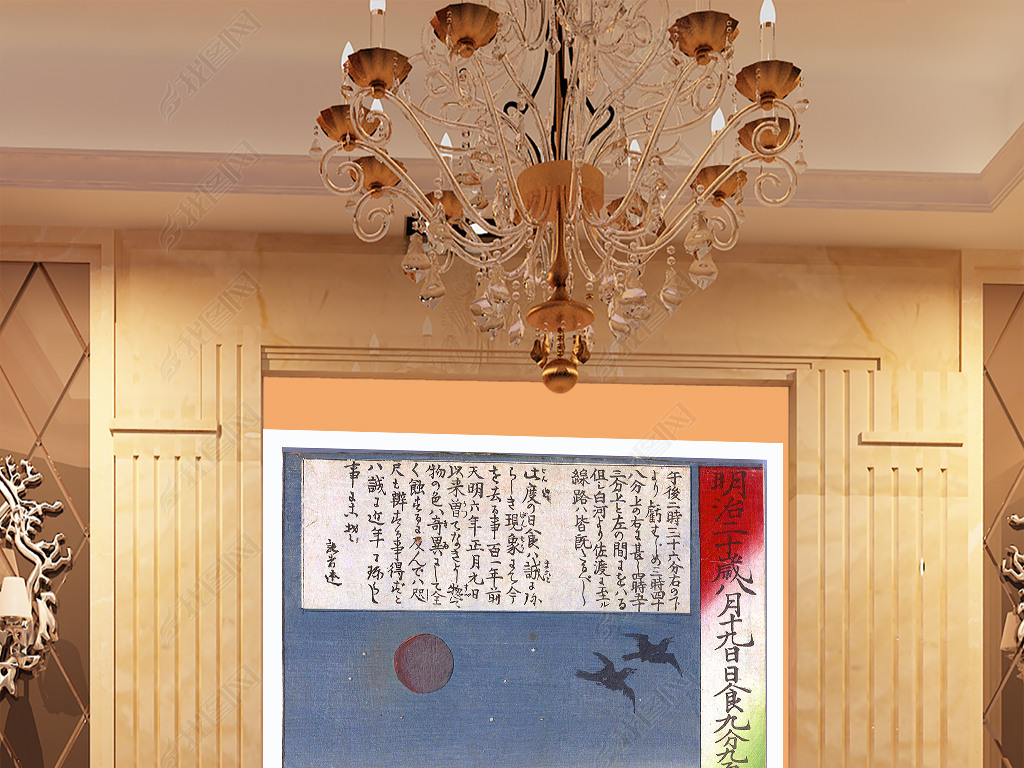 明治二十歳八月十九日日食九分九
午後二時三十六分右の下
より虧はじめ三時四十
八分上の右甚し四時五十
三分上と左の間にをはる
但し白河より佐渡に至ル
線路ハ皆既なるべし
此度の日食ハ誠に
らしき現象にて今
を去る事一百一年前
天明六年正月元日
以来曽てなきより惣
物の色ハ奇異にして全
く蝕するに及んでハ咫
尺も辨ずる事得ずと
ハ誠に近年の珎らし
事に
我图网